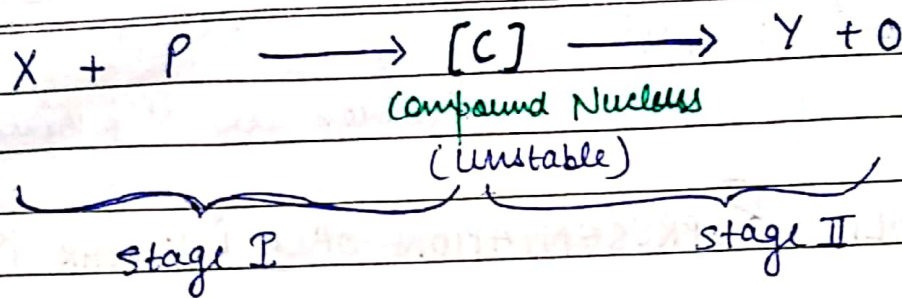 X + P ⟶ [C] ⟶ Y + O
Compound Nucleus
(Unstable)
Stage I stage II